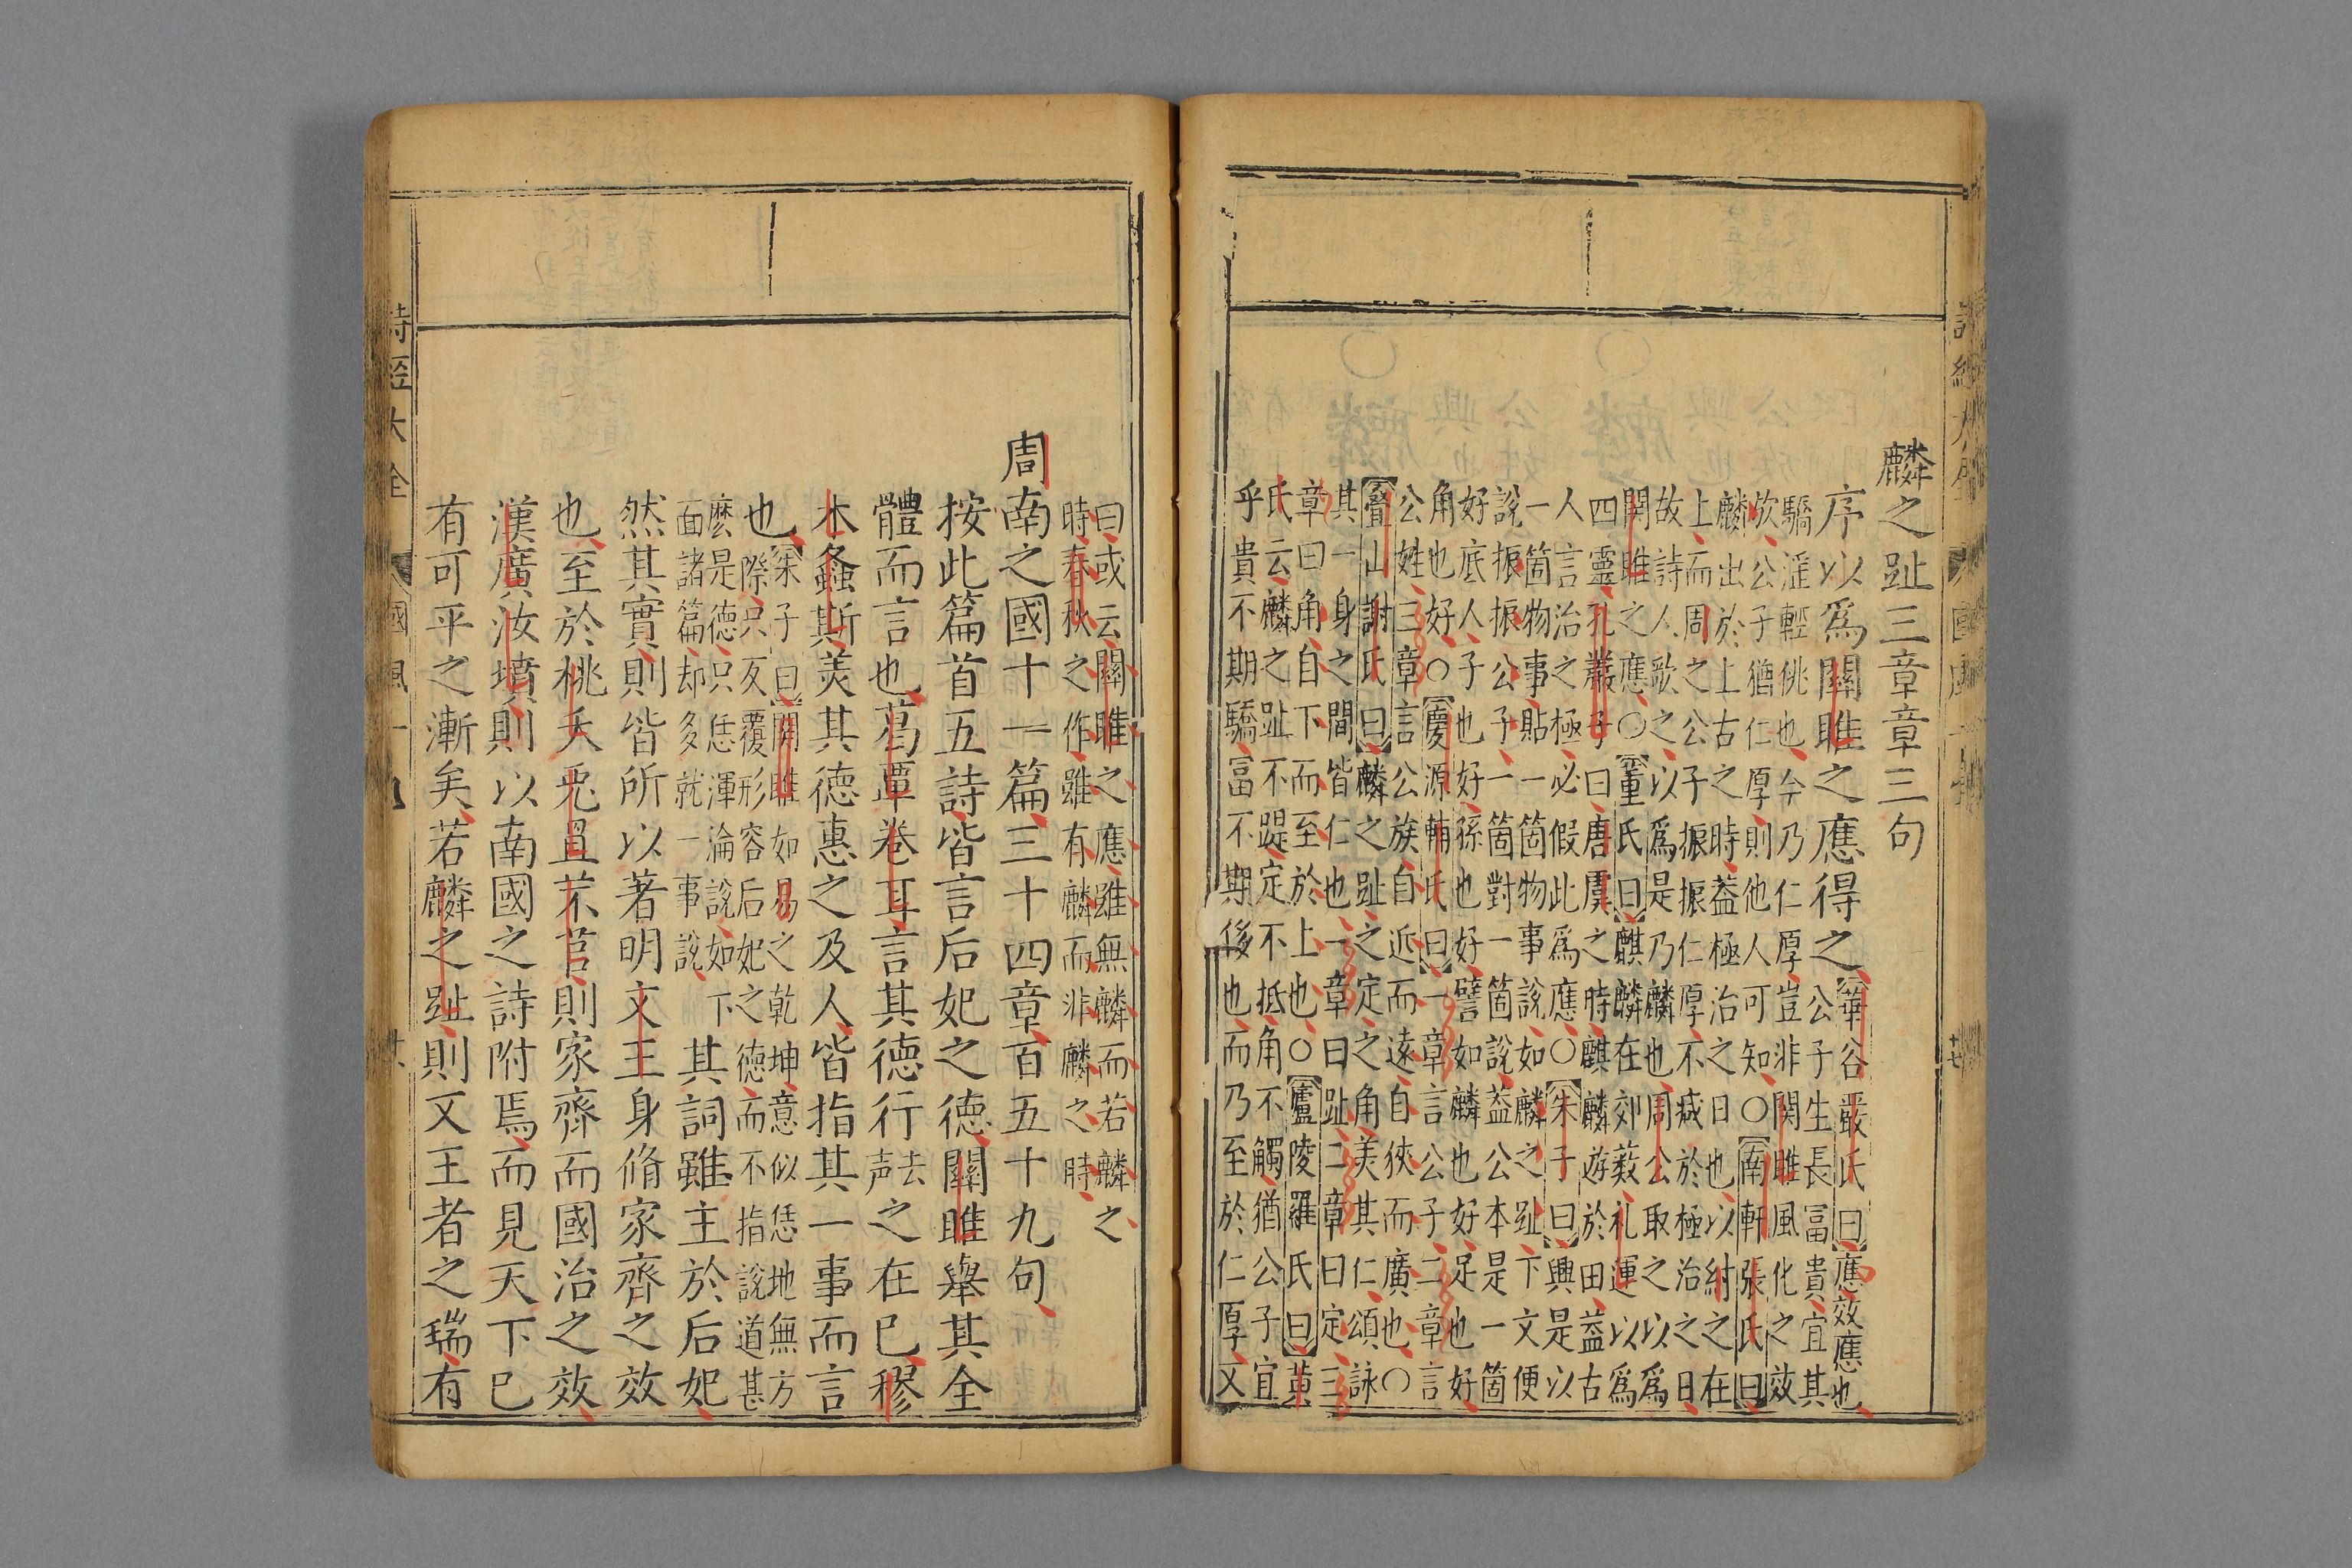 麟之趾三章章三句
序以爲關雎之應得之
華谷嚴氏曰應效應也
公子生長冨貴宜其
驕滛輕佻也今乃仁厚豈非関雎風化之效
欤公子猶仁厚則他人可知〇南軒張氏曰
麟出於上古之時葢極治之日也以紂之在
上而周之公子振振仁厚不减於極治之日
故詩人歌之以爲是乃麟也周公取之以爲
関雎之應〇董氏曰麒麟在郊薮礼運以爲
四靈孔叢子曰唐虞之時麒麟遊於田葢古
人言治之極必假此爲應〇朱子曰興是以
一箇物事貼一箇物事說如麟之趾下文便
說振振公子一箇對一箇說葢公本是一箇
好底人子也好孫也好譬如麟也好足也好
角也好〇慶源輔氏曰一章言公子二章言
公姓三章言公族自近而遠自狹而廣也〇
疊山謝氏曰麟之趾之定之角美其仁頌詠
其一身之間皆仁也一章曰趾二章曰定三
章曰角自下而至於上也〇廬陵羅氏曰黄
氏云麟之趾不踶定不抵角不觸猶公子宜
乎貴不期驕冨不期侈也而乃至於仁厚又
曰或云關雎之應雖無麟而若麟之
時春秋之作雖有麟而非麟之時
周南之國十一篇三十四章百五十九句
按此篇首五詩皆言后妃之德關雎舉其全
體而言也葛覃卷耳言其德行去声之在已樛
木螽斯美其德惠之及人皆指其一事而言
也朱子曰関雎如易之乾坤意似恁地無方
際只反覆形容后妃之德而不指說道甚
麽是德只恁渾淪說如下
面諸篇却多就一事說
其詞雖主於后妃
然其實則皆所以著明文王身脩家齊之效
也至於桃夭兎罝芣苢則家齊而國治之效
漢廣汝墳則以南國之詩附焉而見天下已
有可平之漸矣若麟之趾則又王者之瑞有
詩經大全
國風一